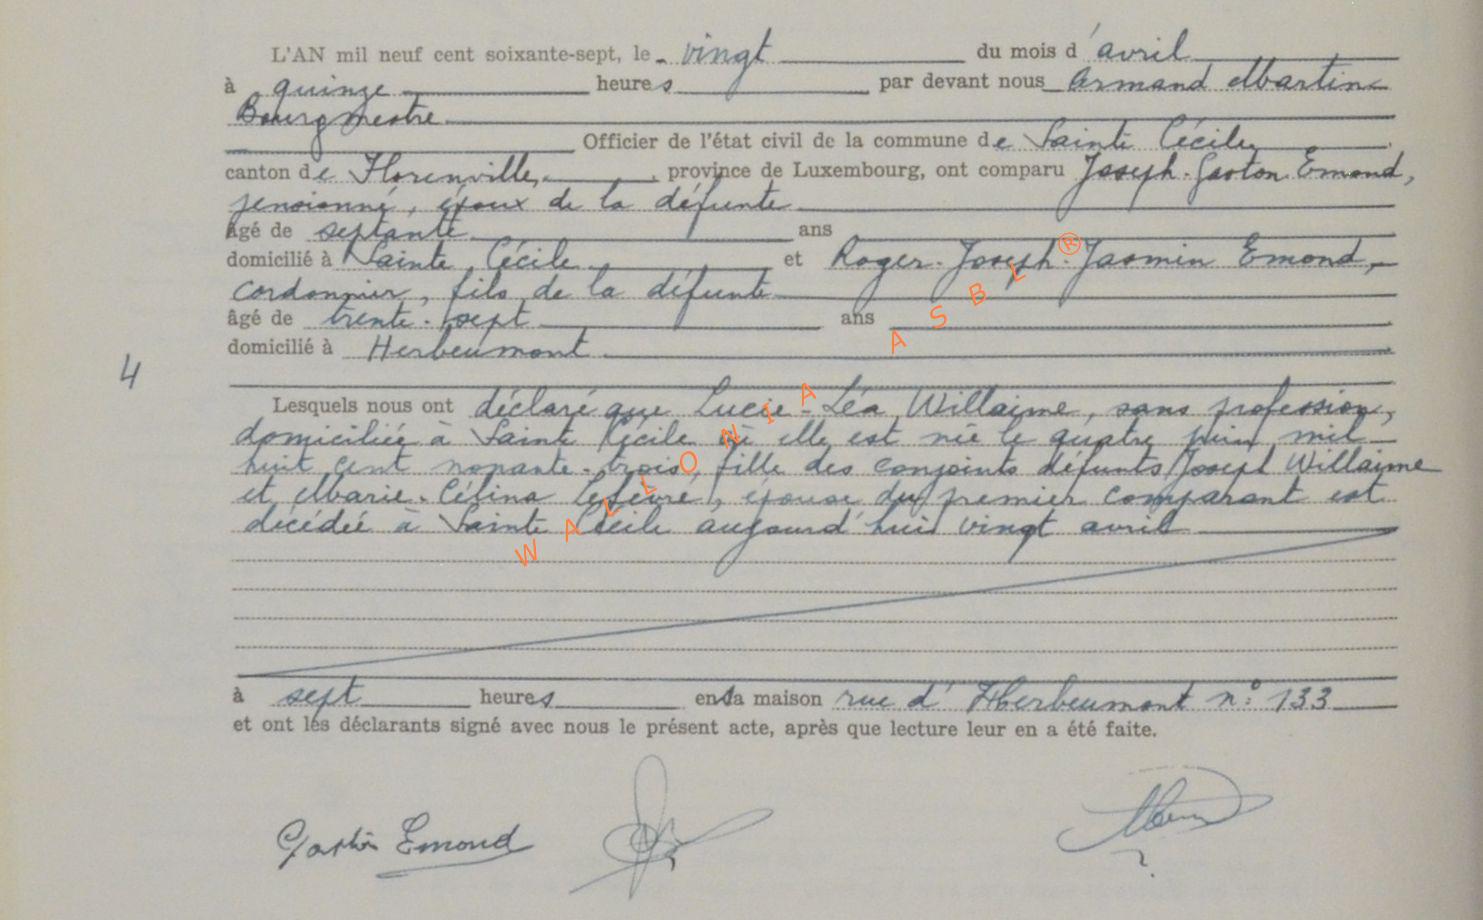 L'AN mil neuf cent soixante-sept, le vingt du mois d'avril
à quinze heures par devant nous Armand Martin
Bourgmestre
Officier de l'état civil de la commune de Sainte Cécile
canton de Florenville, province de Luxembourg, ont comparu Joseph-Gaston Emond,
pensionné, époux de la défunte
âgé de septante ans
domicilié à Sainte Cécile et Roger-Joseph-Jasmin Emond,
cordonnier, fils de la défunte
âgé de trente-sept ans
domicilié à Herbeumont
4
Lesquels nous ont déclaré que Lucie-Léa Willaime, sans profession,
domiciliée à Sainte Cécile où elle est née le quatre juin mil
huit cent nonante-trois, fille des conjoints défunts Joseph Willaime
et Marie-Célina Lefèvre, épouse du premier comparant est
décédée à Sainte Cécile aujourd'hui vingt avril
à sept heures en la maison rue d'Herbeumont n° 133
et ont les déclarants signé avec nous le présent acte, après que lecture leur en a été faite.
Gaston Emond
WALLONIA ASBL ®